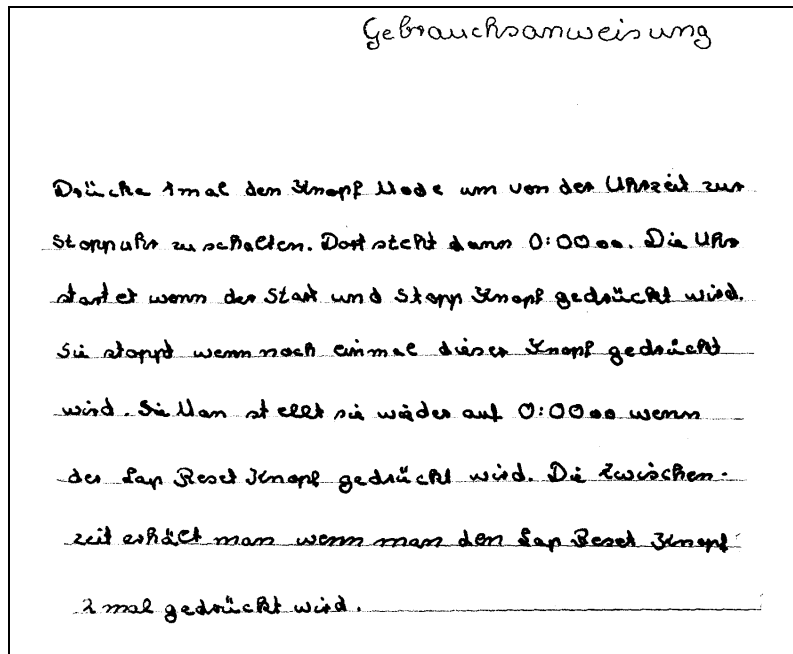 Gebrauchsanweisung
Drücke 1mal den Knopf Mode um von der Uhrzeit zur
Stoppuhr zu schalten. Dort steht dann 0:00 00. Die Uhr
startet wenn der Start und Stopp Knopf gedrückt wird.
Sie stoppt wenn noch einmal dieser Knopf gedrückt
wird. Sie Man stellt sie wieder auf 0:00 00 wenn
der Lap Reset Knopf gedrückt wird. Die Zwischen-
zeit erhält man wenn man den Lap Reset Knopf
2 mal gedrückt wird.